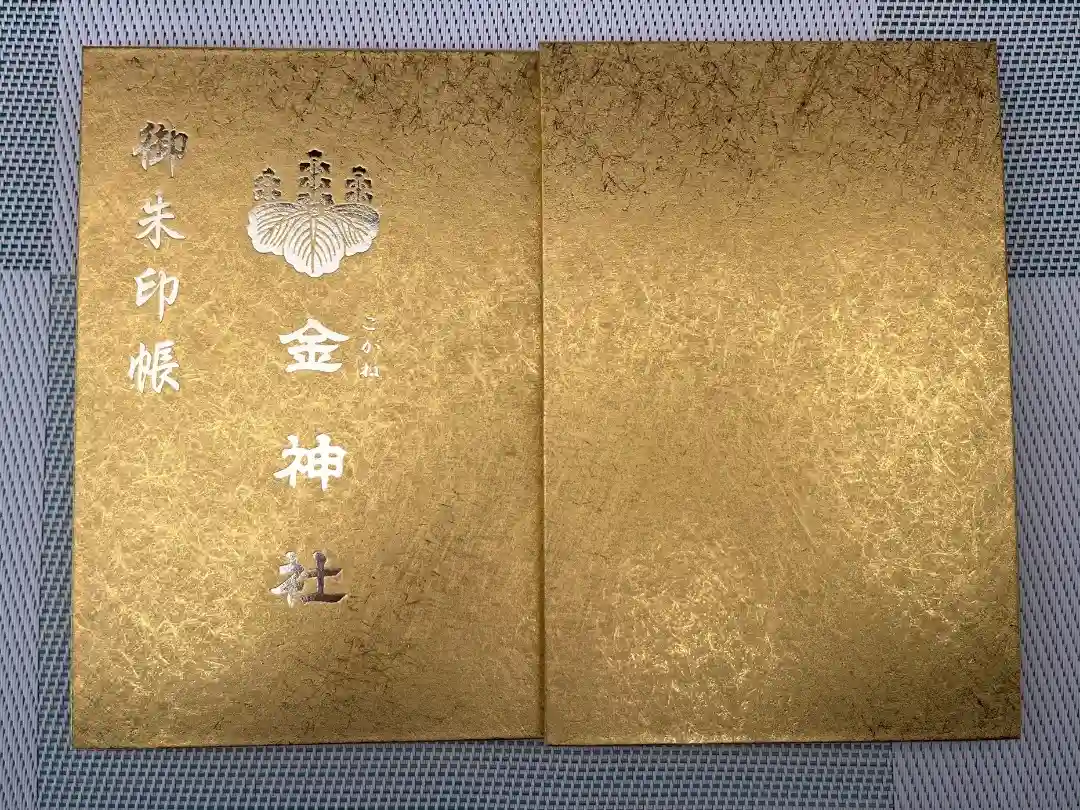 御朱印帳
金神社
こがね